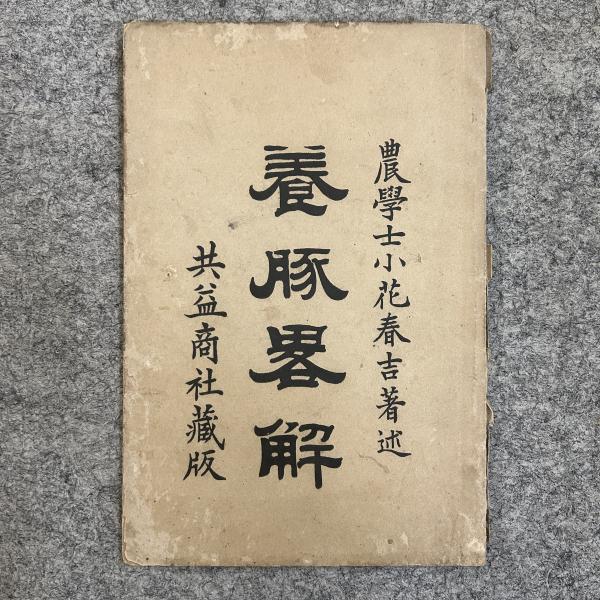 農學士小花春吉著述
養豚畧解
共益商社藏版